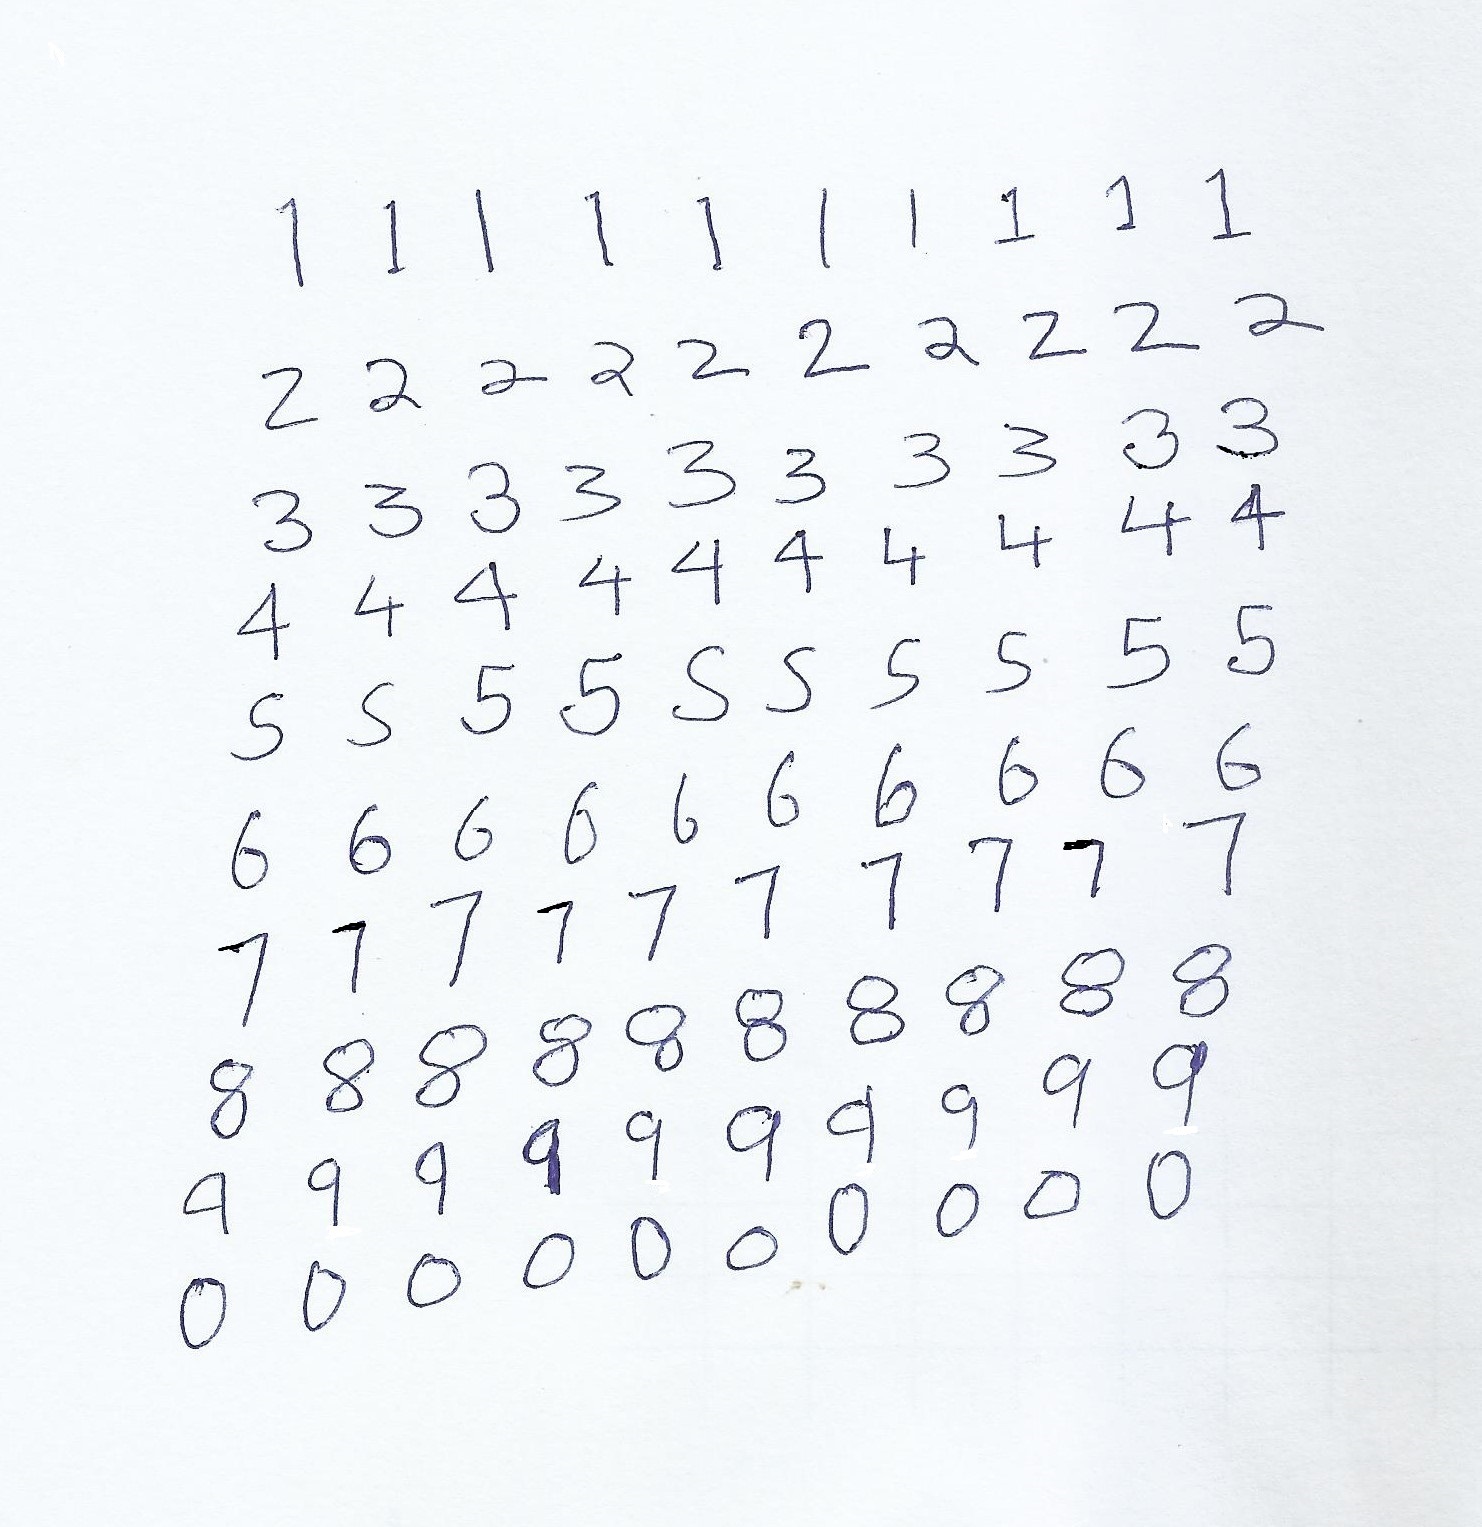 1 1 1 1 1 1 1 1 1 1
2 2 2 2 2 2 2 2 2 2
3 3 3 3 3 3 3 3 3 3
4 4 4 4 4 4 4 4 4 4
5 5 5 5 5 5 5 5 5 5
6 6 6 6 6 6 6 6 6 6
7 7 7 7 7 7 7 7 7 7
8 8 8 8 8 8 8 8 8 8
9 9 9 9 9 9 9 9 9 9
0 0 0 0 0 0 0 0 0 0